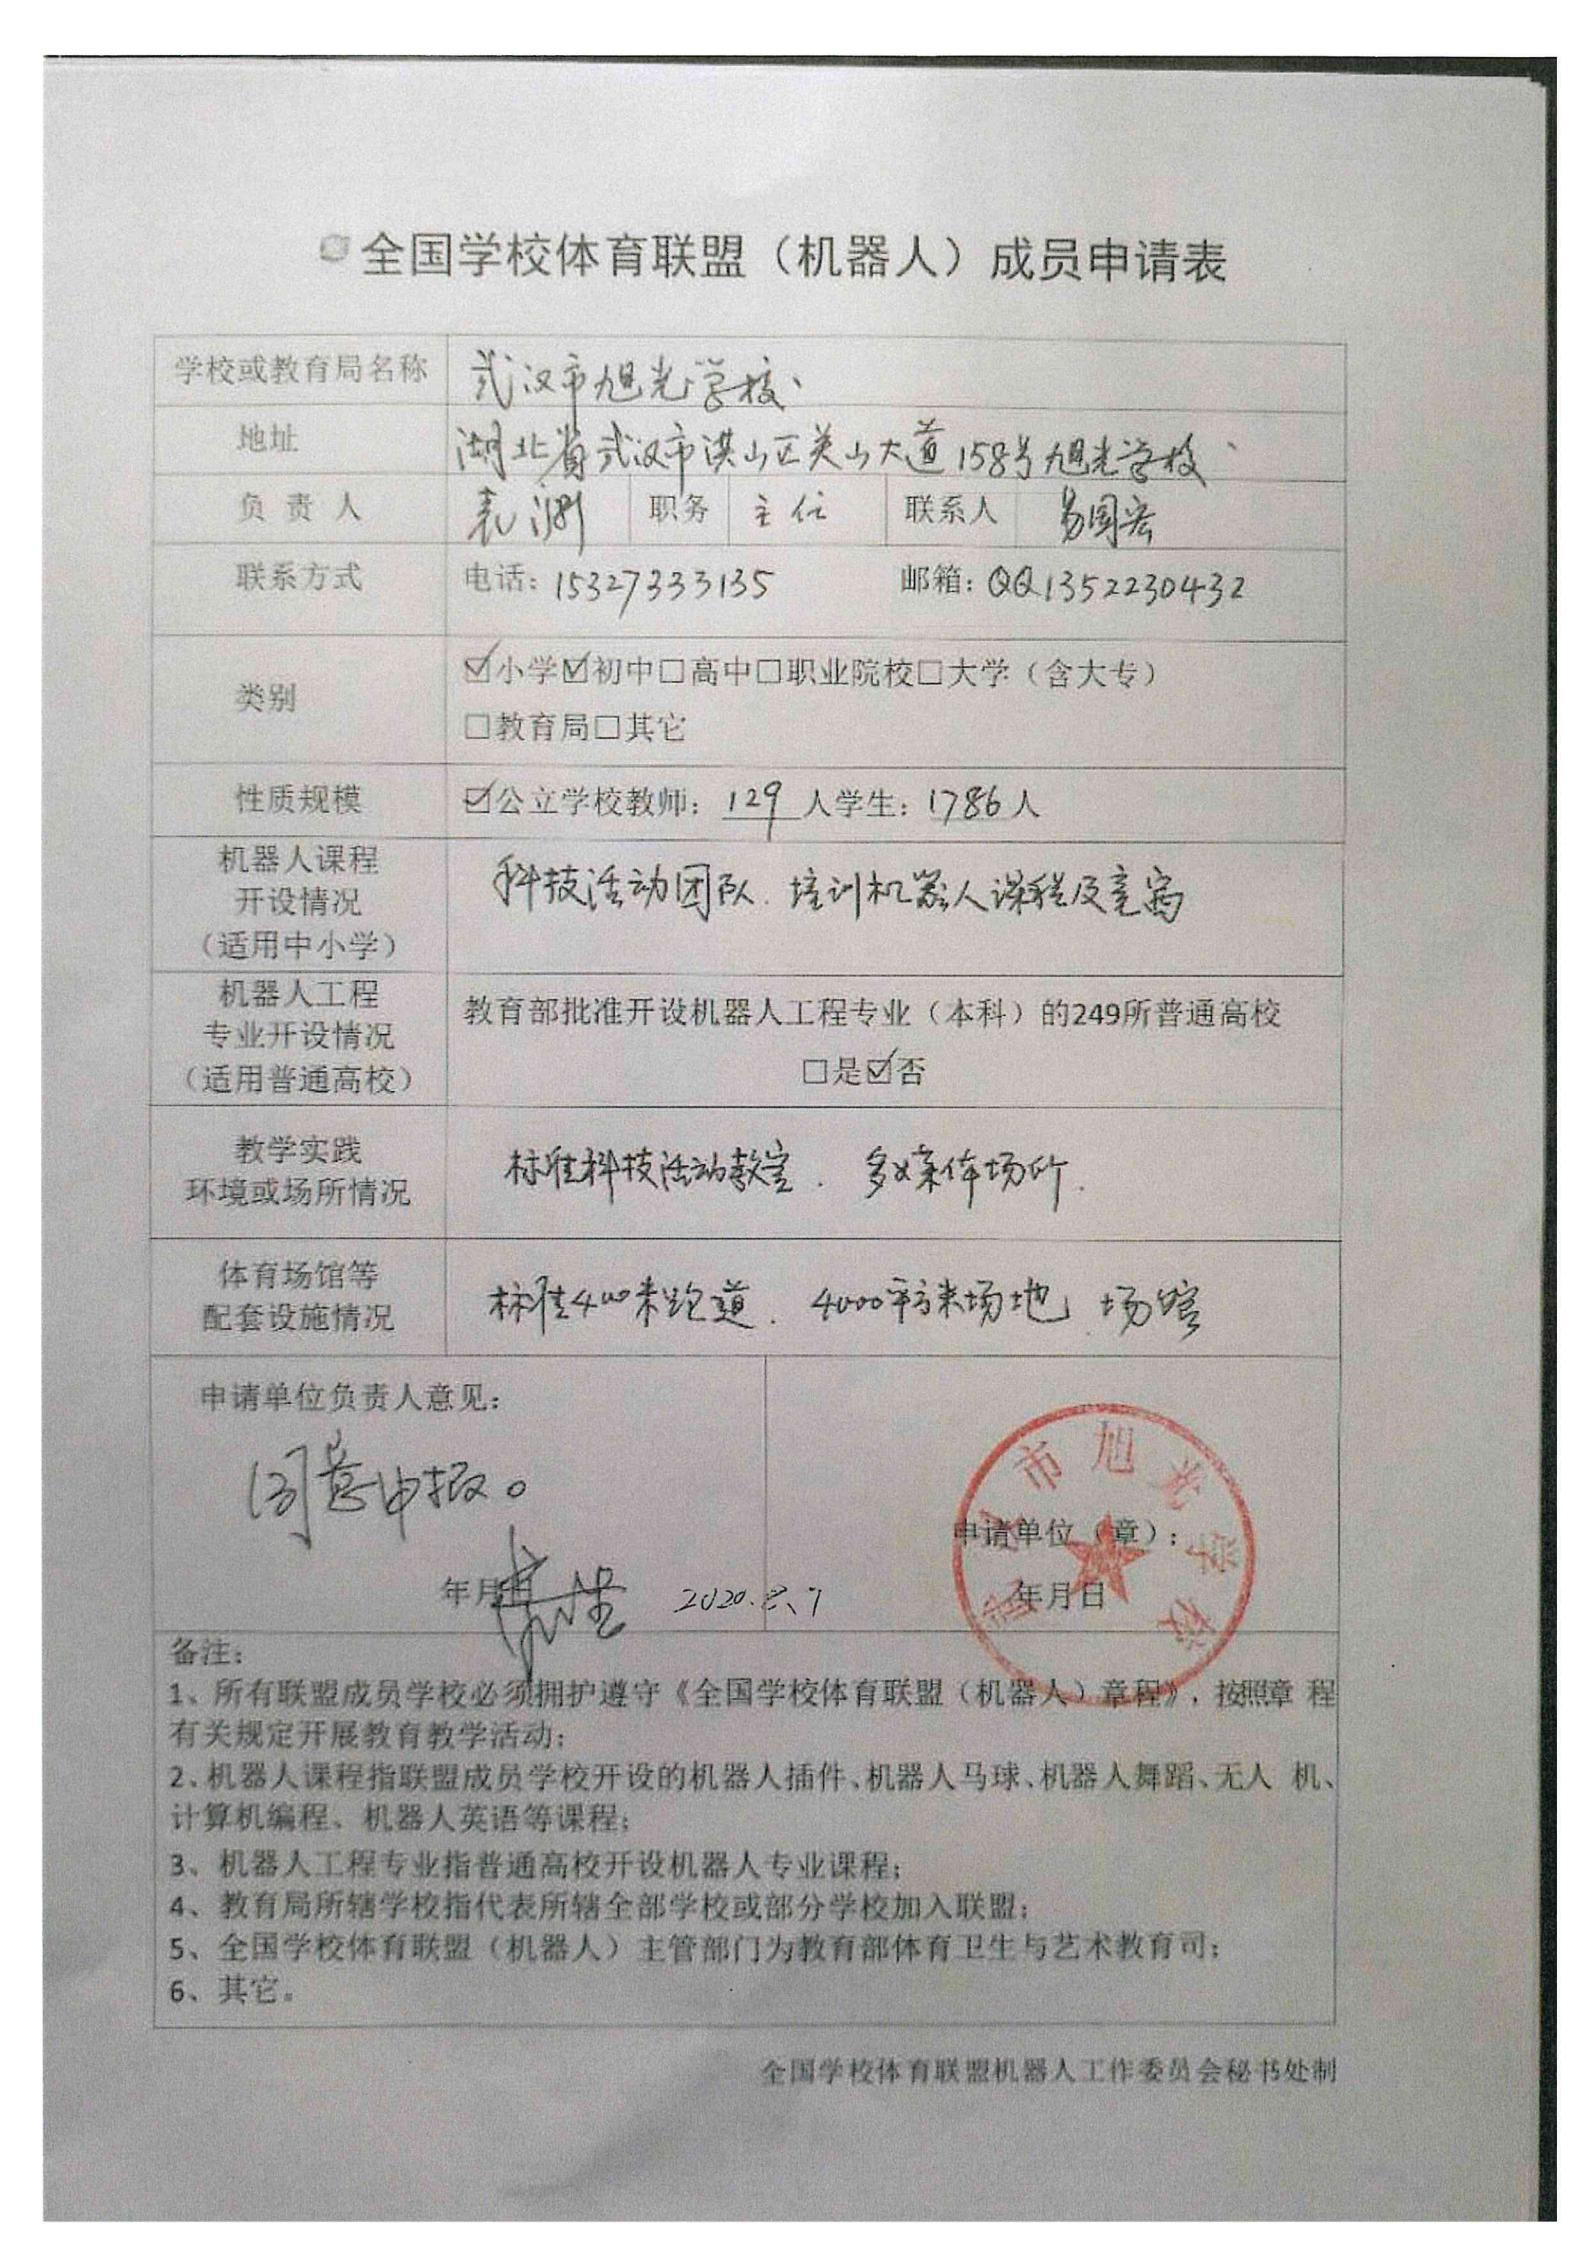 全国学校体育联盟（机器人）成员申请表
学校或教育局名称 武汉市旭光学校
地址 湖北省武汉市洪山区关山大道158号旭光学校
负 责 人 袁渊 职务 主任 联系人 易国宏
联系方式 电话：15327333135 邮箱：QQ1352230432
类别 ☑小学☑初中□高中□职业院校□大学（含大专）
□教育局□其它
性质规模 ☑公立学校教师：129人学生：1786人
机器人课程
开设情况
（适用中小学）
科技活动团队．培训机器人课程及竞赛
机器人工程
专业开设情况
（适用普通高校）
教育部批准开设机器人工程专业（本科）的249所普通高校
□是☑否
教学实践
环境或场所情况
标准科技活动教室．多媒体场所．
体育场馆等
配套设施情况
标准400米跑道．4000平方米场地．场馆
申请单位负责人意见：
同意申报。
年月日
2020.8.7
武汉市旭光学校
申请单位（章）：
年月日
备注：
1、所有联盟成员学校必须拥护遵守《全国学校体育联盟（机器人）章程》，按照章 程
有关规定开展教育教学活动；
2、机器人课程指联盟成员学校开设的机器人插件、机器人马球、机器人舞蹈、无人 机、
计算机编程、机器人英语等课程；
3、机器人工程专业指普通高校开设机器人专业课程；
4、教育局所辖学校指代表所辖全部学校或部分学校加入联盟；
5、全国学校体育联盟（机器人）主管部门为教育部体育卫生与艺术教育司；
6、其它。
全国学校体育联盟机器人工作委员会秘书处制